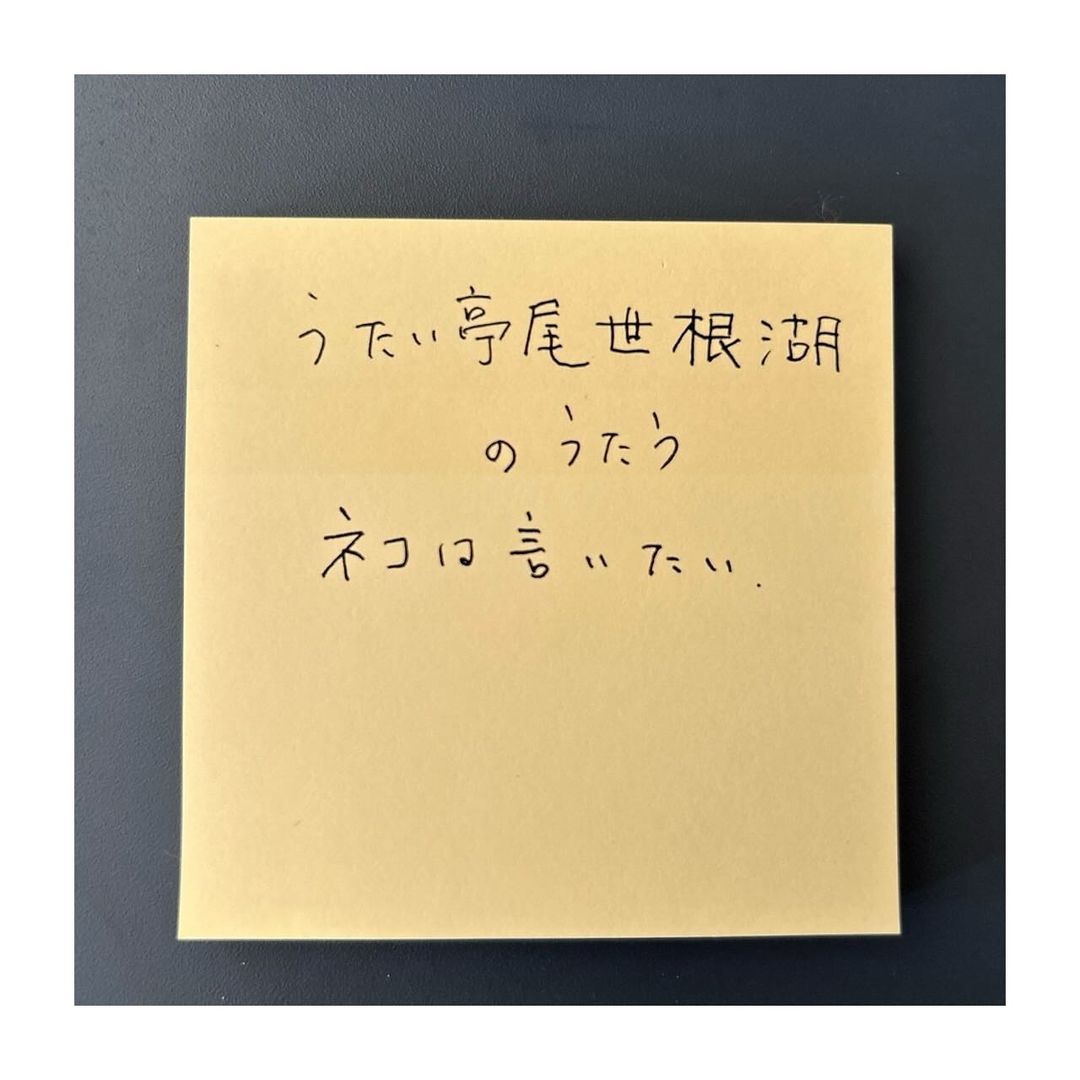 うたい亭尾世根湖
のうたう
ネコは言いたい.